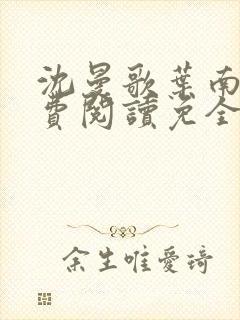 沈曼歌葉南
費閱讀免全
余生唯愛琦